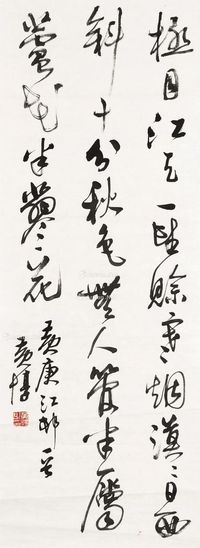 極目江天一望賒寒烟漠〻日西
斜十分秋色無人管半屬
蘆花半蓼花
黄庚江邨一首
黄惇